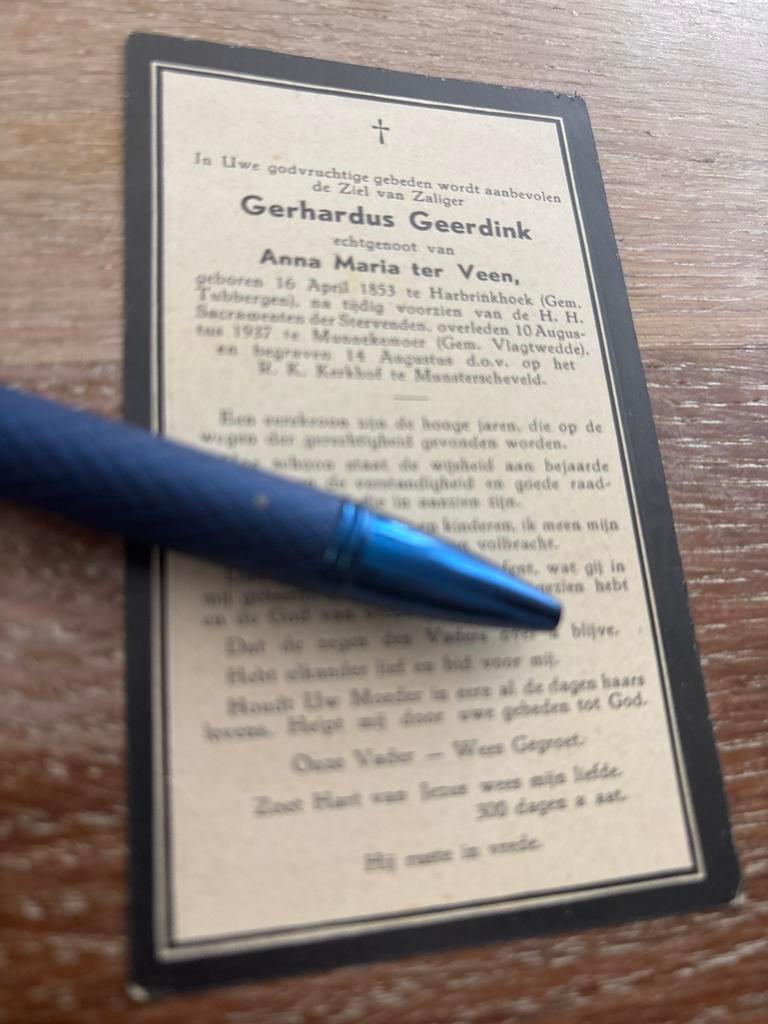 In Uwe godvruchtige gebeden wordt aanbevolen
de Ziel van Zaliger
Gerhardus Geerdink
echtgenoot van
Anna Maria ter Veen,
geboren 16 April 1853 te Harbrinkhoek (Gem.
Tubbergen), na tijdig voorzien van de H. H.
Sacramenten der Stervenden, overleden 10 Augus-
tus 1937 te Munnekemoer (Gem. Vlagtwedde),
en begraven 14 Augustus d.o.v. op het
R. K. Kerkhof te Munsterscheveld.
Een eerekroon zijn de hooge jaren, die op de
wegen der gerechtigheid gevonden worden.
schoon staat de wijsheid aan bejaarde
de verstandigheid en goede raad-
die in aanzien zijn.
kinderen, ik meen mijn
volbracht.
wat gij in
gezien hebt
en de God van
Dat de zegen des Vaders over u blijve.
Hebt elkander lief en bid voor mij.
Houdt Uw Moeder in eere al de dagen haars
levens. Helpt mij door uwe gebeden tot God.
Onze Vader — Wees Gegroet.
Zoet Hart van Jezus wees mijn liefde.
300 dagen a aat.
Hij ruste in vrede.